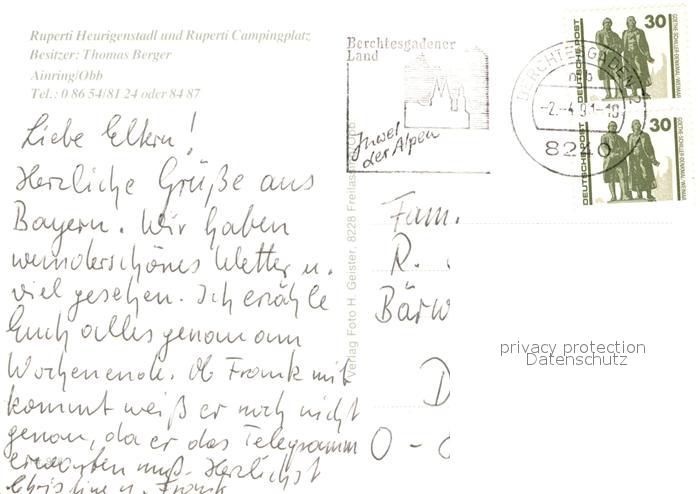 Ruperti Heurigenstadl und Ruperti Campingplatz
Besitzer: Thomas Berger
Ainring/Obb
Tel.: 0 86 54/81 24 oder 84 87
Liebe Eltern!
Herzliche Grüße aus
Bayern. Wir haben
wunderschönes Wetter u.
viel gesehen. Ich erzähle
Euch alles genau am
Wochenende. Ob Frank mit
kommt weiß er noch nicht
genau, da er das Telegramm
erwarten muß. Herzlichst
Christine u. Frank
Verlag Foto H. Geister, 8228 Freilassing/Obb
Berchtesgadener
Land
Juwel
der Alpen
BERCHTESGADEN 2
mb
-2.-4.91-19
8240
30
DEUTSCHE POST
GOETHE-SCHILLER-DENKMAL · WEIMAR
30
DEUTSCHE POST
GOETHE-SCHILLER-DENKMAL · WEIMAR
Fam.
R.
Bärw
D
O -
privacy protection
Datenschutz